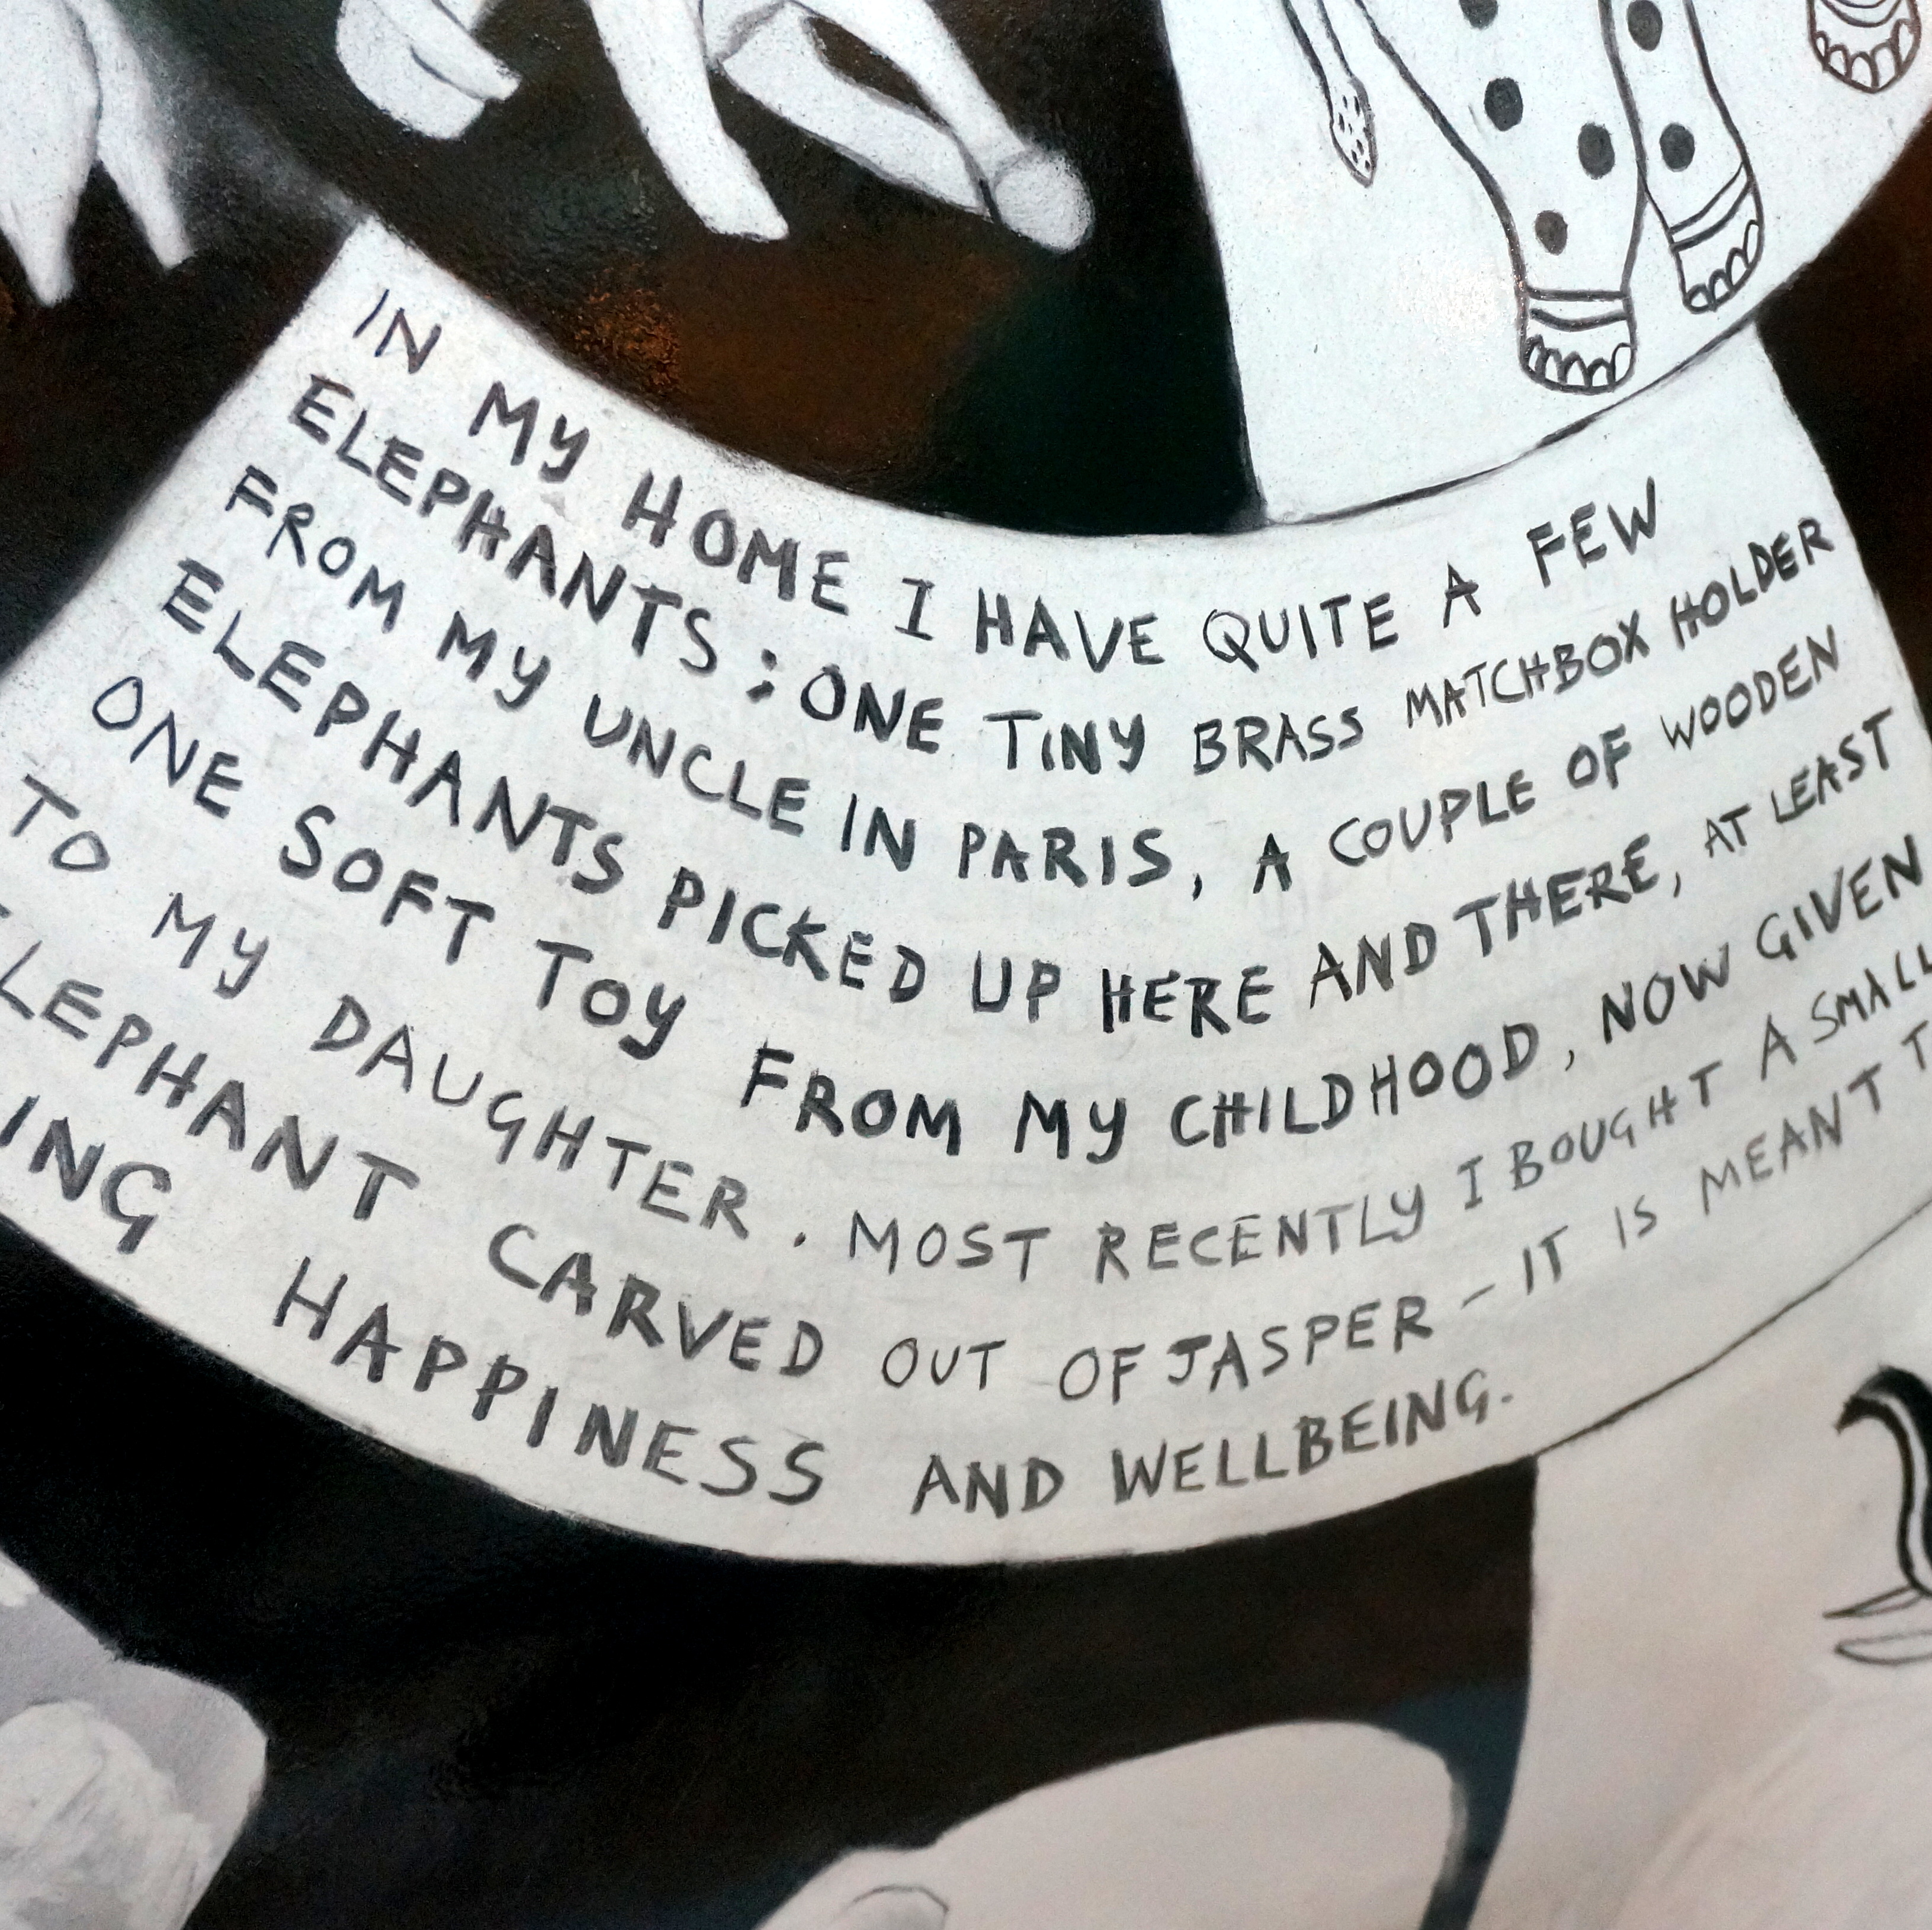 IN MY HOME I HAVE QUITE A FEW
ELEPHANTS; ONE TINY BRASS MATCHBOX HOLDER
FROM MY UNCLE IN PARIS, A COUPLE OF WOODEN
ELEPHANTS PICKED UP HERE AND THERE, AT LEAST
ONE SOFT TOY FROM MY CHILDHOOD, NOW GIVEN
TO MY DAUGHTER. MOST RECENTLY I BOUGHT A SMALL
LEPHANT CARVED OUT OF JASPER - IT IS MEANT T
ING HAPPINESS AND WELLBEING.